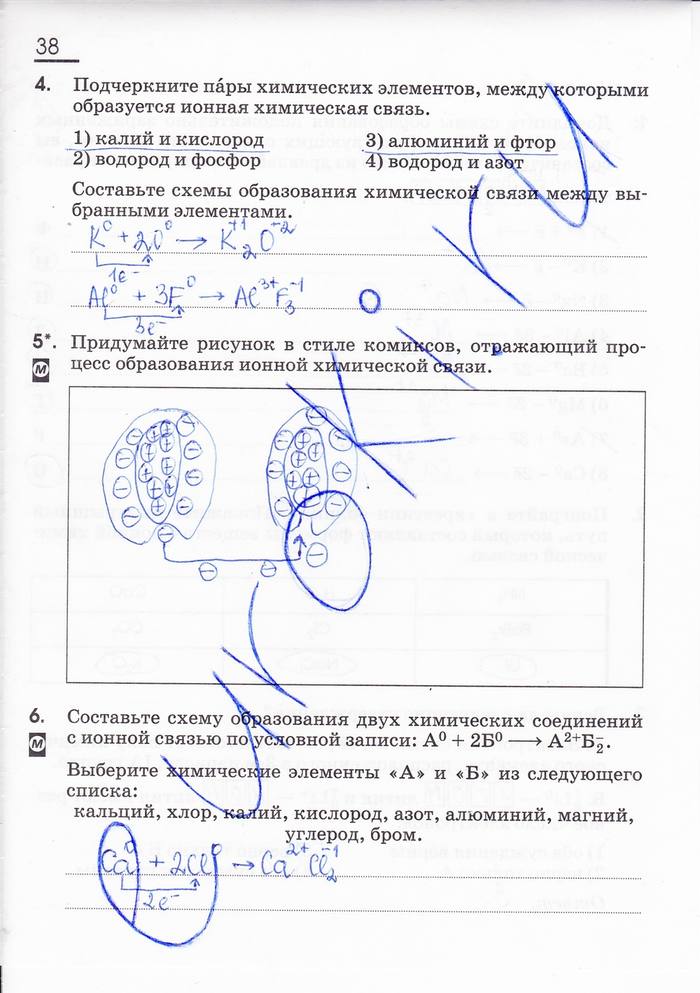 38
4. Подчеркните па́ры химических элементов, между которыми
образуется ионная химическая связь.
1) калий и кислород 3) алюминий и фтор
2) водород и фосфор 4) водород и азот
Составьте схемы образования химической связи между вы-
бранными элементами.
K⁰ + 2O⁰ → K₂⁺¹O⁻²
1e⁻
Al⁰ + 3F⁰ → Al³⁺F₃⁻¹
3e⁻
5*. Придумайте рисунок в стиле комиксов, отражающий про-
М цесс образования ионной химической связи.
6. Составьте схему образования двух химических соединений
М с ионной связью по условной записи: А⁰ + 2Б⁰ ⟶ А²⁺Б₂⁻.
Выберите химические элементы «А» и «Б» из следующего
списка:
кальций, хлор, калий, кислород, азот, алюминий, магний,
углерод, бром.
Ca⁰ + 2Cl⁰ → Ca²⁺Cl₂⁻¹
2e⁻